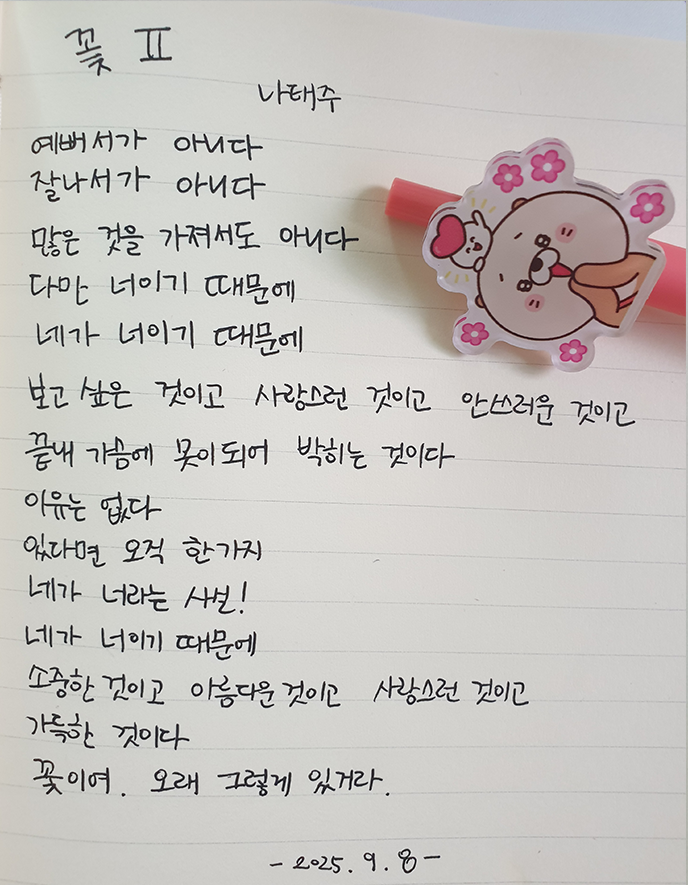 꽃 Ⅱ
나태주
예뻐서가 아니다
잘나서가 아니다
많은 것을 가져서도 아니다
다만 너이기 때문에
네가 너이기 때문에
보고 싶은 것이고 사랑스런 것이고 안쓰러운 것이고
끝내 가슴에 못이되어 박히는 것이다
이유는 없다
있다면 오직 한가지
네가 너라는 사실!
네가 너이기 때문에
소중한 것이고 아름다운 것이고 사랑스런 것이고
가득한 것이다
꽃이여. 오래 그렇게 있거라.
- 2025. 9. 8 -